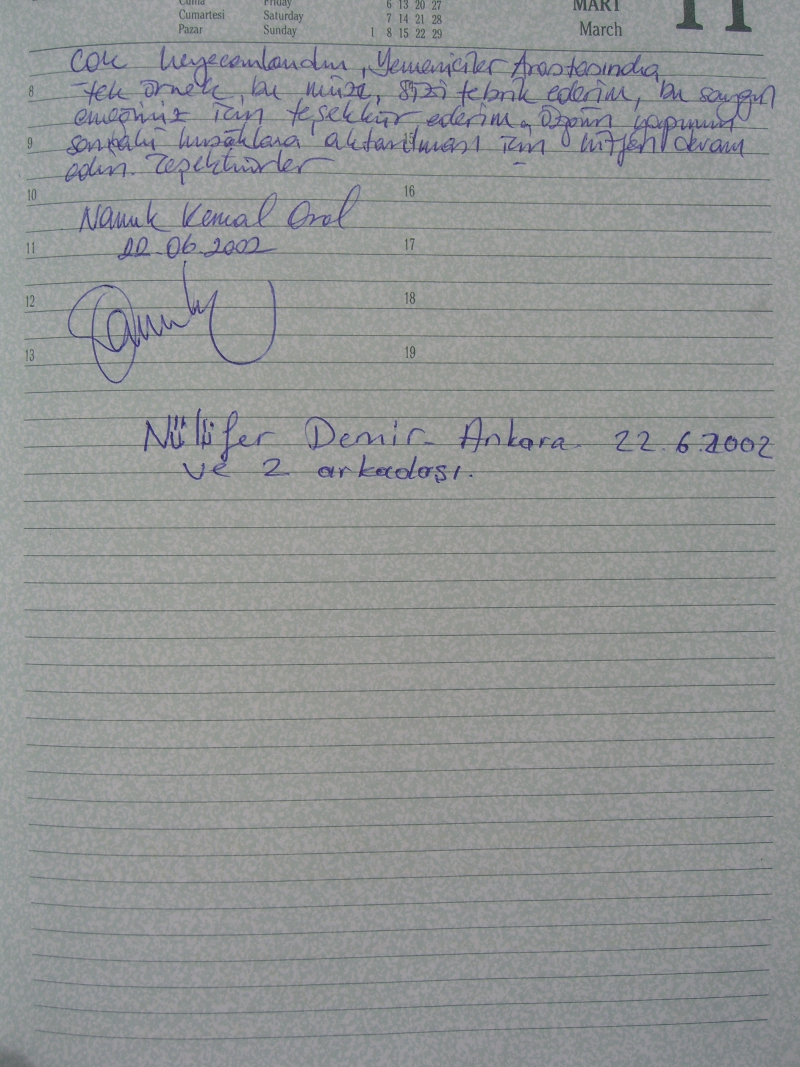 Cuma Friday 6 13 20 27 MART 11
Cumartesi Saturday 7 14 21 28
Pazar Sunday 1 8 15 22 29 March
Çok heyecanlandım, Yemeniciler Arastasında
8 tek örnek, bu müze, sizi tebrik ederim, bu saygın
emeğiniz için teşekkür ederim. Özgün yapının
9 sonraki kuşaklara aktarılması için lütfen devam
edin.
10 16
Namık Kemal Oral
11 22.06.2002 17
12 18
13 19
Nilüfer Demir - Ankara 22.6.2002
ve 2 arkadaşı.